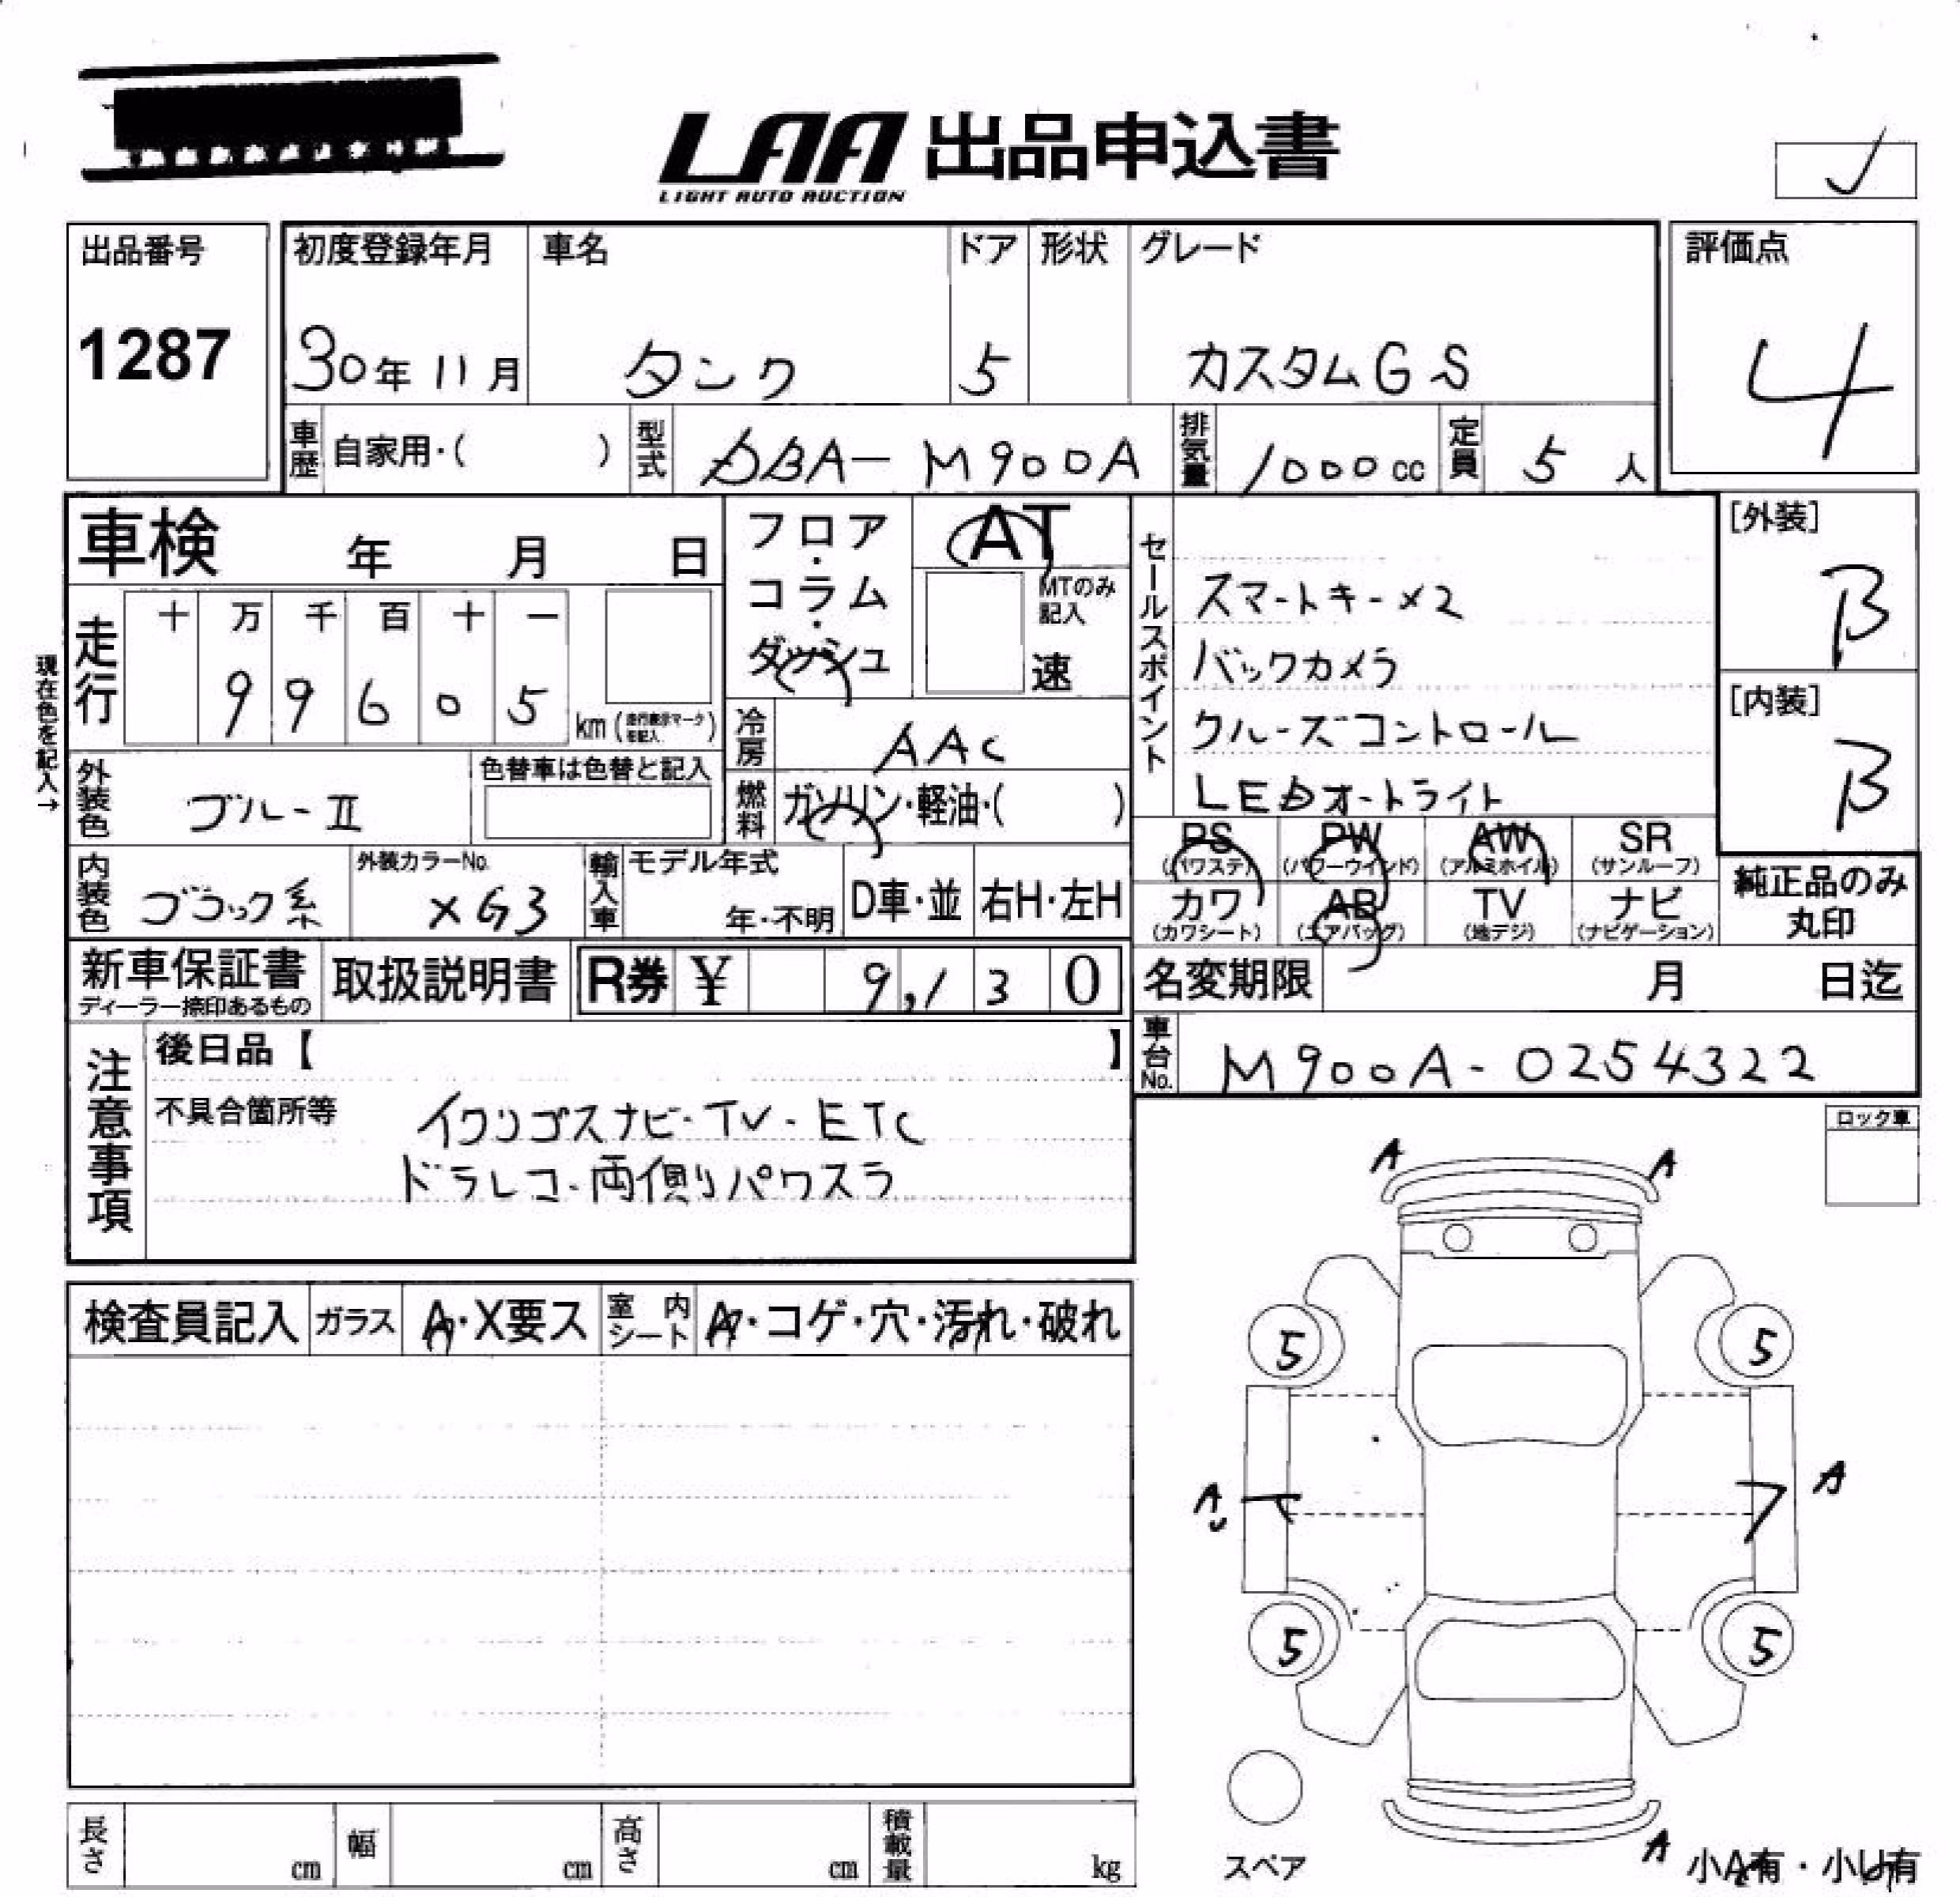 LAA 出品申込書
LIGHT AUTO AUCTION
出品番号 初度登録年月 車名 ドア 形状 グレード 評価点
1287 30年 11月 タンク 5 カスタムGS 4
車歴 自家用・( ) 型式 DBA-M900A 排気量 1000cc 定員 5人
車検 年 月 日
フロア・コラム・ダッシュ
AT
MTのみ記入
速
セールスポイント
スマートキー×2
バックカメラ
クルーズコントロール
LEDオートライト
[外装]
B
[内装]
B
現在色を記入→
走行 十 万 千 百 十 一
9 9 6 0 5 km
冷房 AAC
外装色 ブルーII 色替車は色替と記入
燃料 ガソリン・軽油・( )
PS PW AW SR
(パワステ) (パワーウインド) (アルミホイル) (サンルーフ)
カワ AB TV ナビ
(カワシート) (エアバッグ) (地デジ) (ナビゲーション)
純正品のみ
丸印
内装色 ブラック系 外装カラーNo. XG3 輸入車 モデル年式 年・不明 D車・並 右H・左H
新車保証書 取扱説明書 R券 ¥ 9,130 名変期限 月 日迄
ディーラー捺印あるもの
車台No. M900A-0254322
注意事項
後日品【 】
不具合箇所等 イクリプスナビ・TV・ETC
ドラレコ・両側パワスラ
ロック車
A A
検査員記入 ガラス A・X要ス 室内シート A・コゲ・穴・汚れ・破れ
5 5
A A
5 5
スペア
A 小A有・小U有
長さ cm 幅 cm 高さ cm 積載量 kg